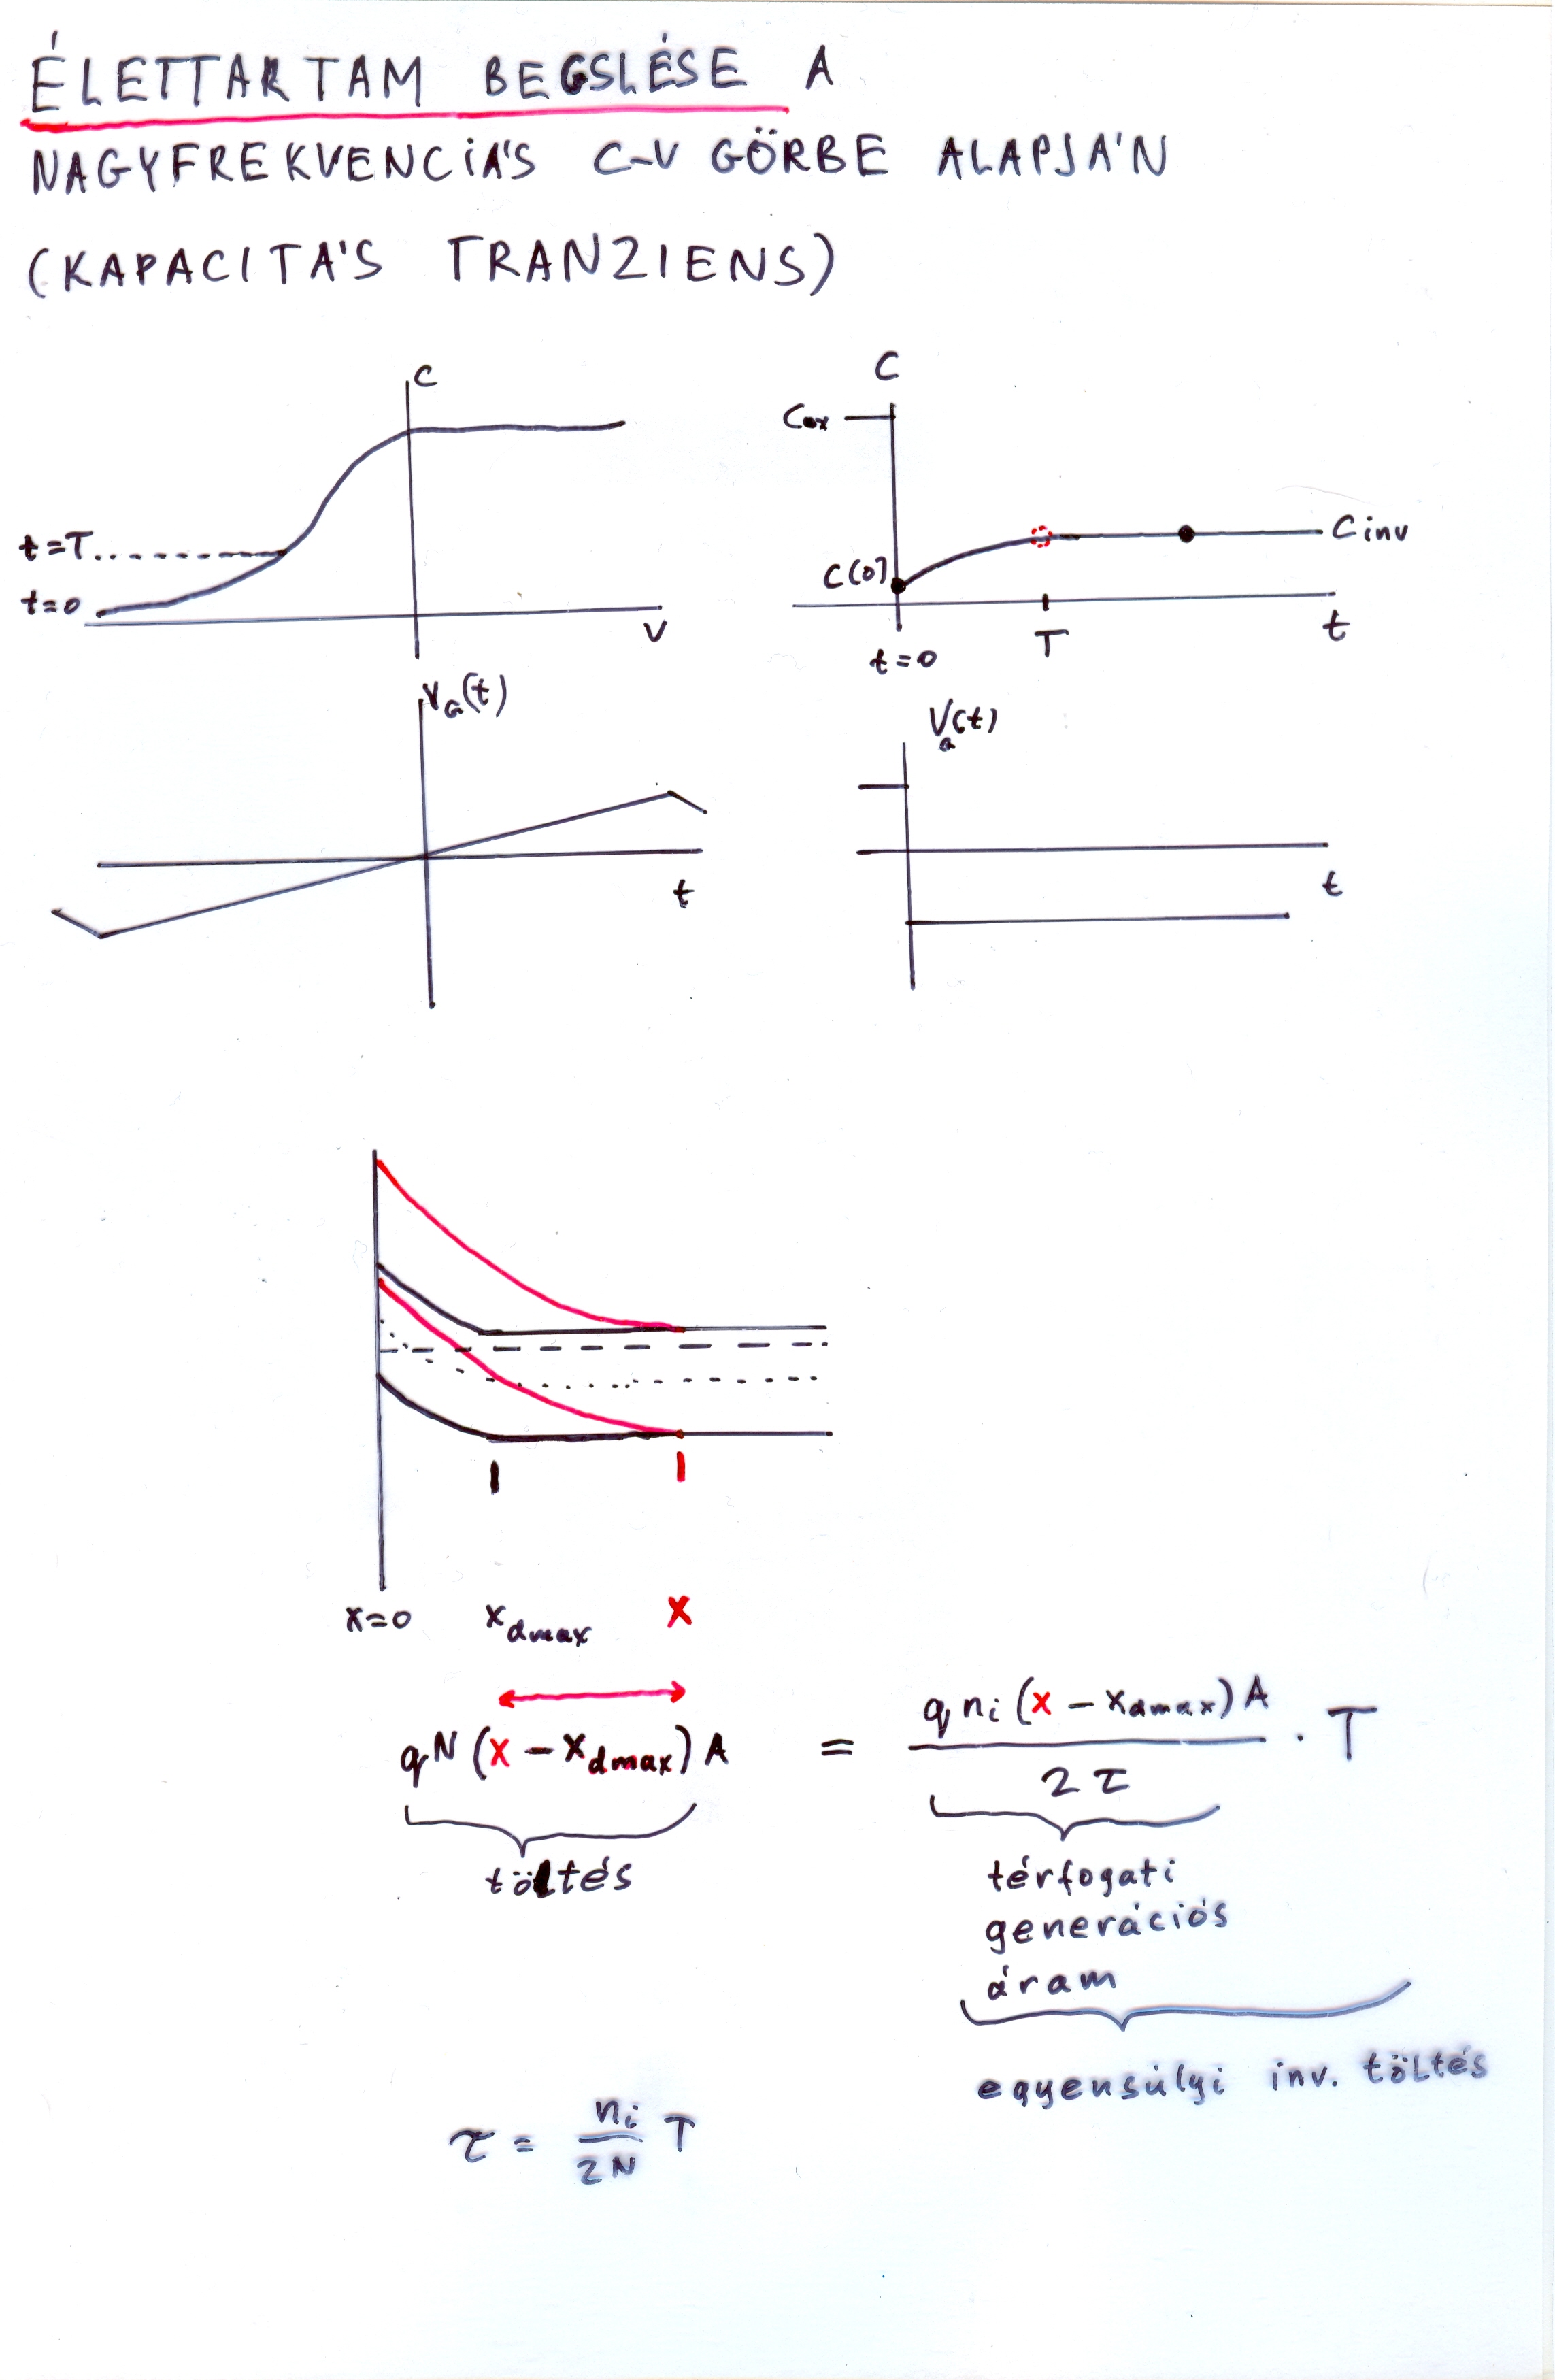 ÉLETTARTAM BEGSLÉSE A
NAGYFREKVENCIÁS C-V GÖRBE ALAPJÁN
(KAPACITÁS TRANZIENS)
C
t=T
t=0
V
C
Cox
C(0)
C inv
t=0
T
t
V_G(t)
t
V_G(t)
t
x=0
x_dmax
x
qN(x - x_dmax)A = q n_i (x - x_dmax) A / 2τ · T
töltés
térfogati
generációs
áram
egyensúlyi inv. töltés
τ = n_i / 2N T